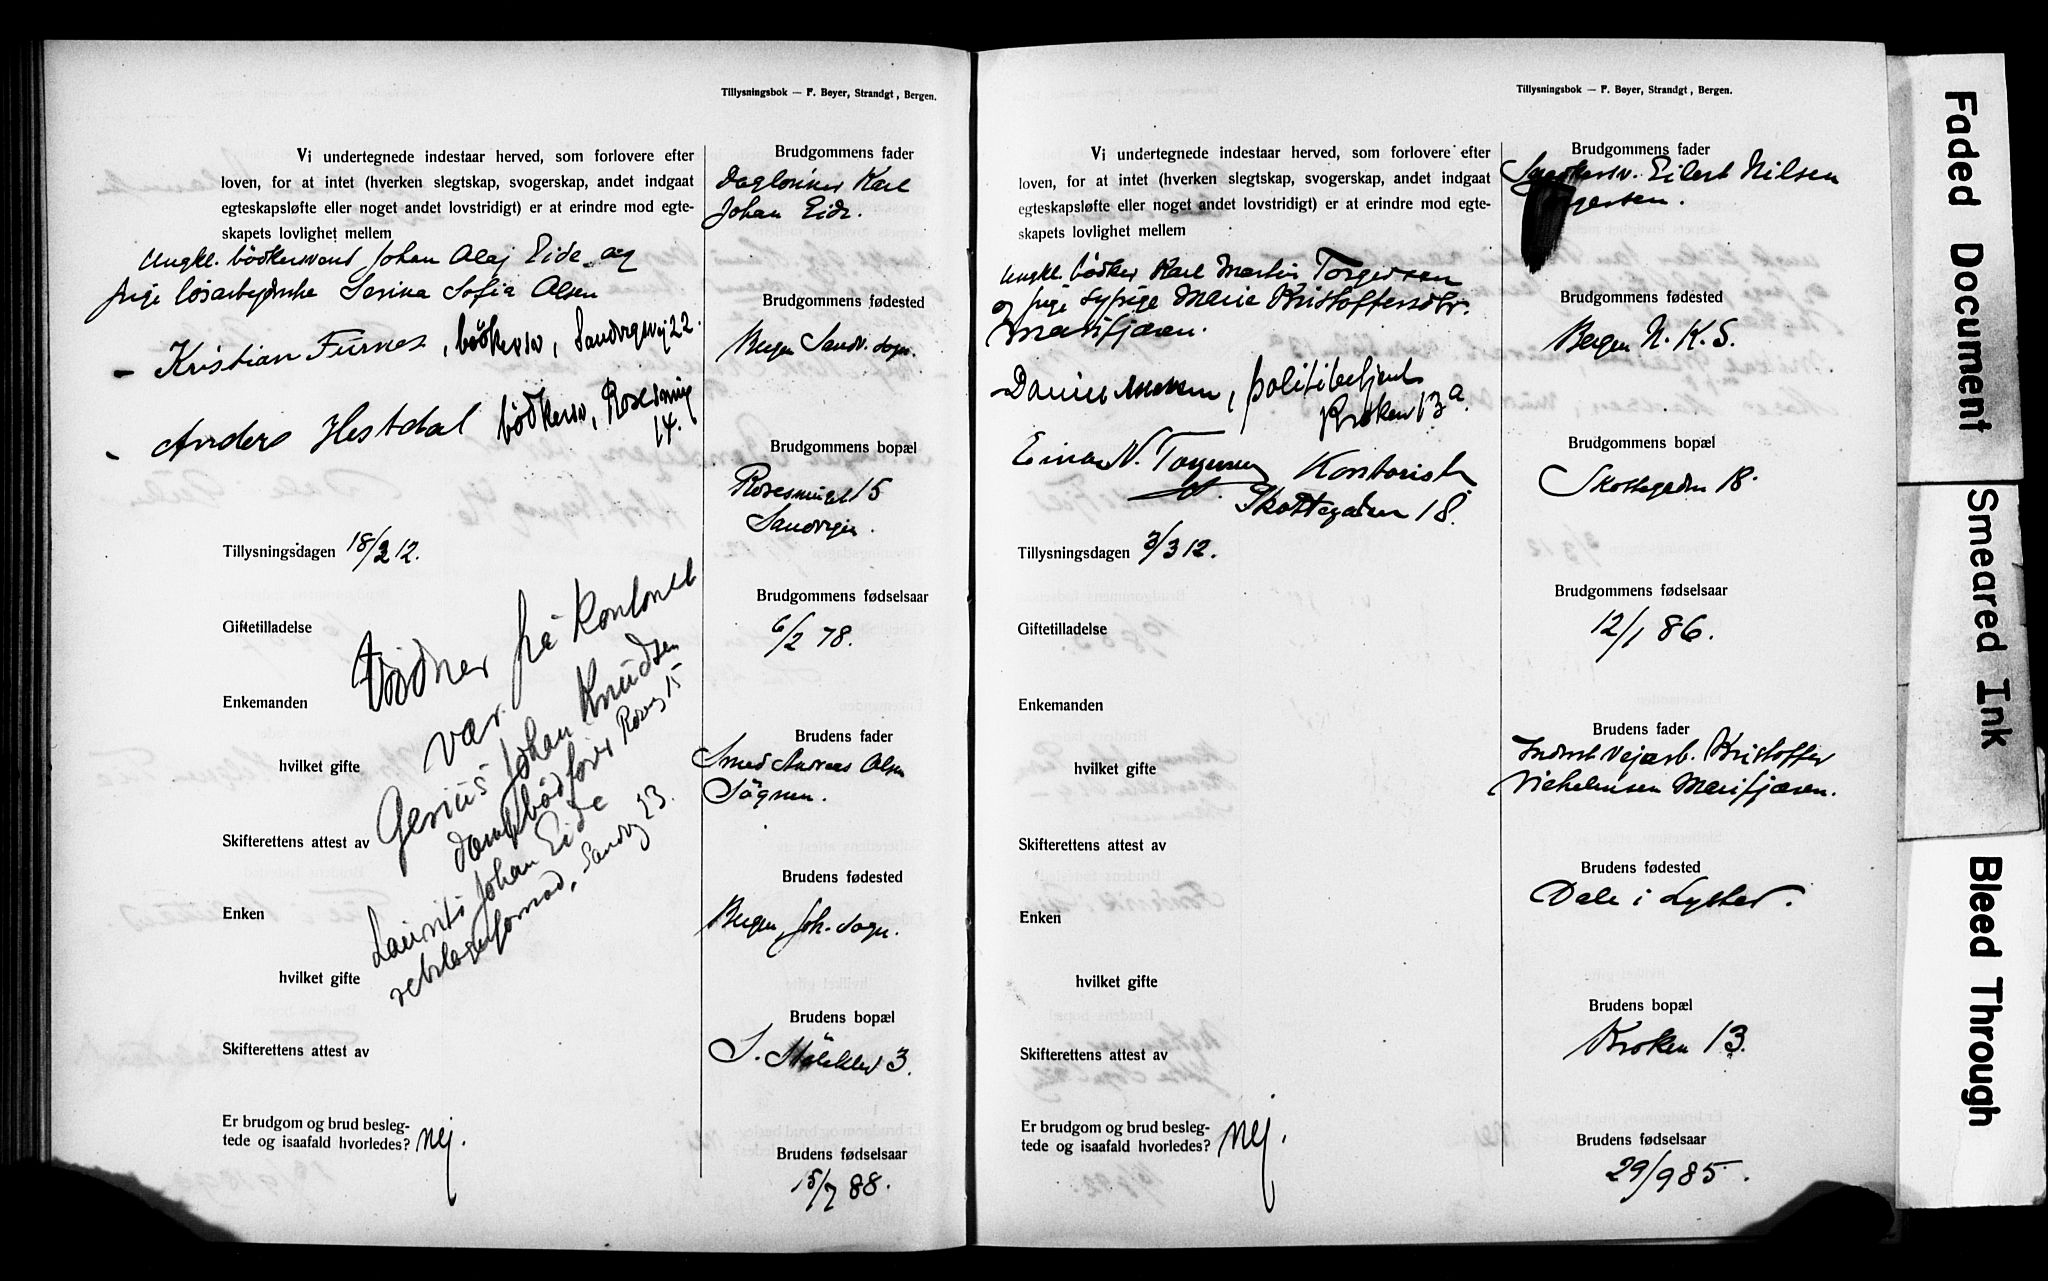 Tillysningsbok — F. Beyer, Strandgt, Bergen.
Vi undertegnede indestaar herved, som forlovere efter
loven, for at intet (hverken slegtskap, svogerskap, andet indgaat
egteskapsløfte eller noget andet lovstridigt) er at erindre mod egte-
skapets lovlighet mellem
Ungkl. bödkersvend Johan Olaj Eide og
pige løsarbejderske Serina Sofia Olsen
- Kristian Furnes, bödkersv, Sandvigsvej 22.
- Anders Hestdal bödkersv, Rosesming
14.
Tillysningsdagen 18/2 12.
Giftetilladelse
Vidner på kontoret
var.
Gerius Johan Knudsen
Rosesg 15
Laurits Johan Eide
Sandvg 23.
Enkemanden
hvilket gifte
Skifterettens attest av
Enken
hvilket gifte
Skifterettens attest av
Er brudgom og brud besleg-
tede og isaafald hvorledes? Nej.
Brudgommens fader
Dagleiner Karl
Johan Eide.
Brudgommens fødested
Bergen Sandv. sogn.
Brudgommens bopæl
Rosesminget 15
Sandvigen.
Brudgommens fødselsaar
6/2 78.
Brudens fader
Smed Andreas Olsen
Sögnen.
Brudens fødested
Bergen, Joh. sogn.
Brudens bopæl
S. 3.
Brudens fødselsaar
15/7 88.
Tillysningsbok — F. Beyer, Strandgt, Bergen.
Vi undertegnede indestaar herved, som forlovere efter
loven, for at intet (hverken slegtskap, svogerskap, andet indgaat
egteskapsløfte eller noget andet lovstridigt) er at erindre mod egte-
skapets lovlighet mellem
Ungkl. bödker Karl Martin Torgersen
og pige Syrige Marie Kristoffersdtr.
Marifjæren.
Daniel politibetjent
Kroken 13a.
Einar N. Torgersen Kontorist
Skottegaden 18.
Tillysningsdagen 3/3 12.
Giftetilladelse
Enkemanden
hvilket gifte
Skifterettens attest av
Enken
hvilket gifte
Skifterettens attest av
Er brudgom og brud besleg-
tede og isaafald hvorledes? Nej.
Brudgommens fader
Eilert Nilsen
Brudgommens fødested
Bergen N. K. S.
Brudgommens bopæl
Skottegaden 18.
Brudgommens fødselsaar
12/1 86.
Brudens fader
Indrest Vejarb. Kristoffer
Vichelmsen Marifjæren.
Brudens fødested
Dale i Lyster.
Brudens bopæl
Kroken 13.
Brudens fødselsaar
29/9 85.
Faded Document
Smeared Ink
Bleed Through